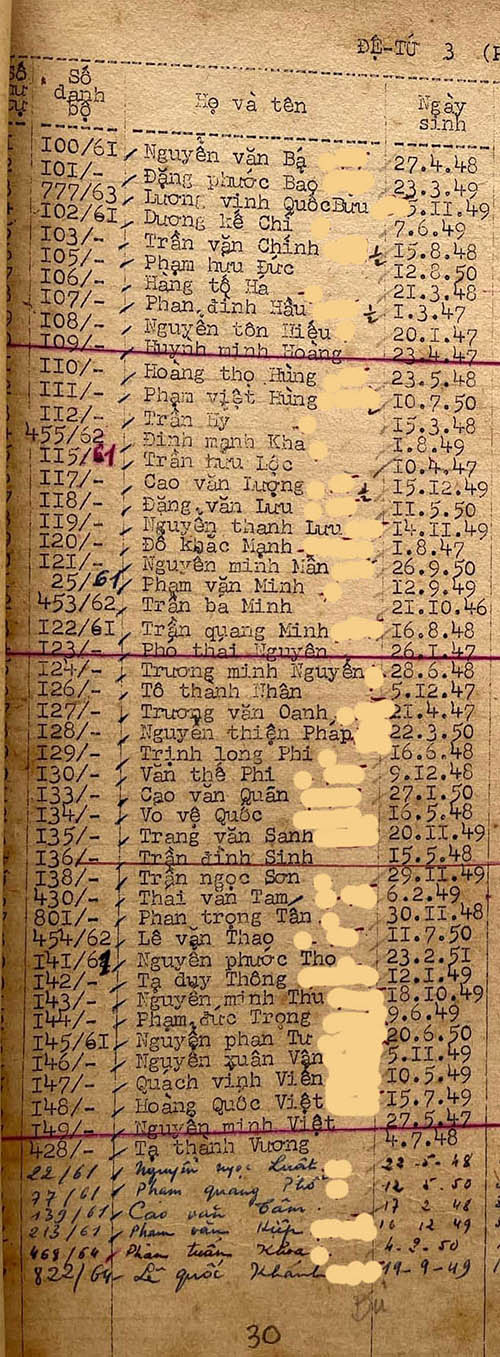 ĐỆ-TỨ 3 (P
Số danh bộ Họ và tên Ngày sinh
I00/6I Nguyễn văn Bá 27.4.48
I0I/- Đặng phước Bảo 23.3.49
777/63 Lương vịnh QuốcBửu 5.II.49
I02/6I Dương kế Chí 7.6.49
I03/- Trần văn Chính I5.8.48
I05/- Phạm hưu Đức I2.8.50
I06/- Hàng tô Há 2I.3.48
I07/- Phan đình Hầu I.3.47
I08/- Nguyễn tôn Hiếu 20.I.47
I09/- Huỳnh minh Hoàng 23.4.47
II0/- Hoàng thọ Hùng 23.5.48
III/- Phạm việt Hùng I0.7.50
II2/- Trần Hy I5.3.48
455/62 Đinh mạnh Kha I.8.49
II5/61 Trần hưu Lộc I0.4.47
II7/- Cao văn Lượng I5.I2.49
II8/- Đặng văn Lưu II.5.50
II9/- Nguyễn thanh Lưu I4.II.49
I20/- Đỗ khắc Mạnh I.8.47
I2I/- Nguyễn minh Mẫn 26.9.50
25/61 Phạm văn Minh I2.9.49
453/62 Trần ba Minh 2I.I0.46
I22/6I Trần quang Minh I6.8.48
I23/- Phó thai Nguyên 26.I.47
I24/- Trương minh Nguyên 28.6.48
I26/- Tô thành Nhân 5.I2.47
I27/- Trương văn Oanh 2I.4.47
I28/- Nguyễn thiện Pháp 22.3.50
I29/- Trịnh long Phi I6.6.48
I30/- Văn thế Phi 9.I2.48
I33/- Cao văn Quân 27.I.50
I34/- Vo vệ Quốc I6.5.48
I35/- Trang văn Sanh 20.II.49
I36/- Trần đình Sinh I5.5.48
I38/- Trần ngọc Sơn 29.II.49
430/- Thái văn Tam 6.2.49
80I/- Phan trọng Tân 30.II.48
454/62 Lê văn Thao II.7.50
I4I/61 Nguyễn phước Thọ 23.2.5I
I42/- Tạ duy Thông I2.I.49
I43/- Nguyễn minh Thu I8.I0.49
I44/- Phạm đức Trọng 9.6.49
I45/6I Nguyễn phan Tư 20.6.50
I46/- Nguyễn xuân Vân 5.II.49
I47/- Quách vinh Viễn I0.5.49
I48/- Hoàng Quốc Việt I5.7.49
I49/- Nguyễn minh Việt 27.5.47
428/- Tạ thành Vương 4.7.48
22/61 Nguyễn ngọc Luật 22-5-48
77/61 Phạm quang Phố 12 5.50
139/61 Cao văn Tâm 17 2 48
213/61 Phạm văn Hiệp 16 12 49
468/64 Phan tuấn Khoa 4-9-50
822/64 Lê quốc Khánh 19-9-49
Bù
30